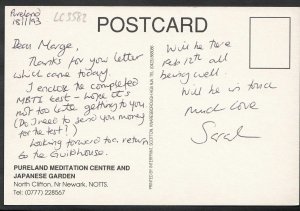 Pureland
18/1/93
LC3582
POSTCARD
Dear Marge,
Thanks for you letter
which came today.
I enclose the completed
MBTI test - hope it's
not too late getting to you
(Do I need to send you money
for the test?)
Looking forward to return
to the Guildhouse.
Will be there
Feb 12th all
being well.
Will be in touch
much love
Sarah
PURELAND MEDITATION CENTRE AND
JAPANESE GARDEN
North Clifton, Nr Newark, NOTTS.
Tel: (0777) 228567